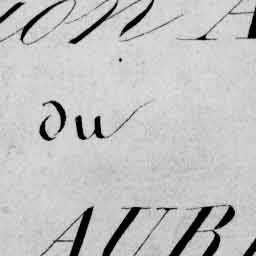 ion A
du
AUBE